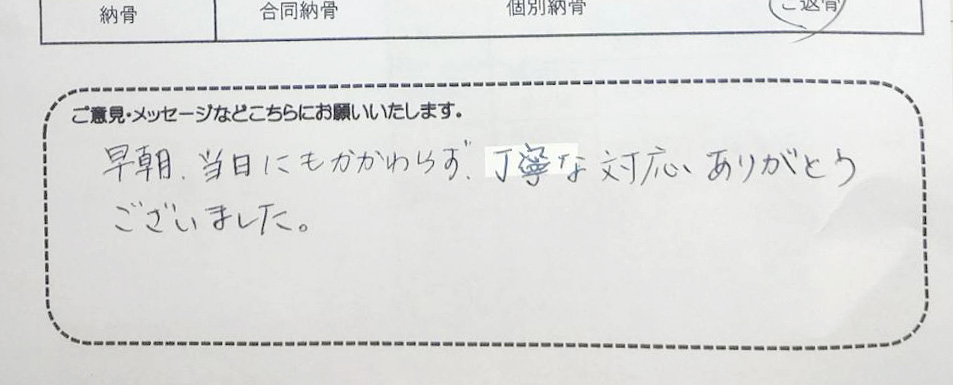 納骨 合同納骨 個別納骨 ご返骨
ご意見・メッセージなどこちらにお願いいたします。
早朝、当日にもかかわらず、丁寧な対応、ありがとう
ございました。